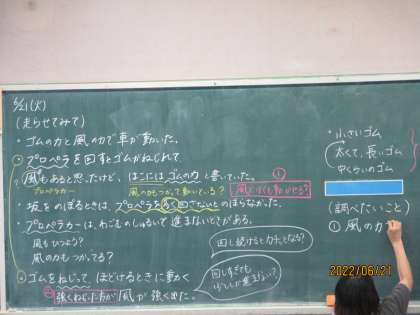 6/21(火)
(走らせてみて)
・ゴムの力と風の力で車が動いた。
・プロペラを回すとゴムがねじれて
風もあると思ったけど、はこにはゴムの力と書いていた。
プロペラカー
風の力もつかって動いている?
①
風だけでも動かせる?
・坂をのぼるときは、プロペラを多く回さないとのぼらなかった。
・プロペラカーは、わゴムのしゅるいで進まないときがある。
風もひつよう?
風の力もつかってる?
・ゴムをねじって、ほどけるときに動く
強くねじった方が風が強く出た。
回し続けるとカチッとなる?
回しすぎても
・小さいゴム
太くて、長いゴム
中くらいのゴム
(調べたいこと)
① 風の力
2022/06/21